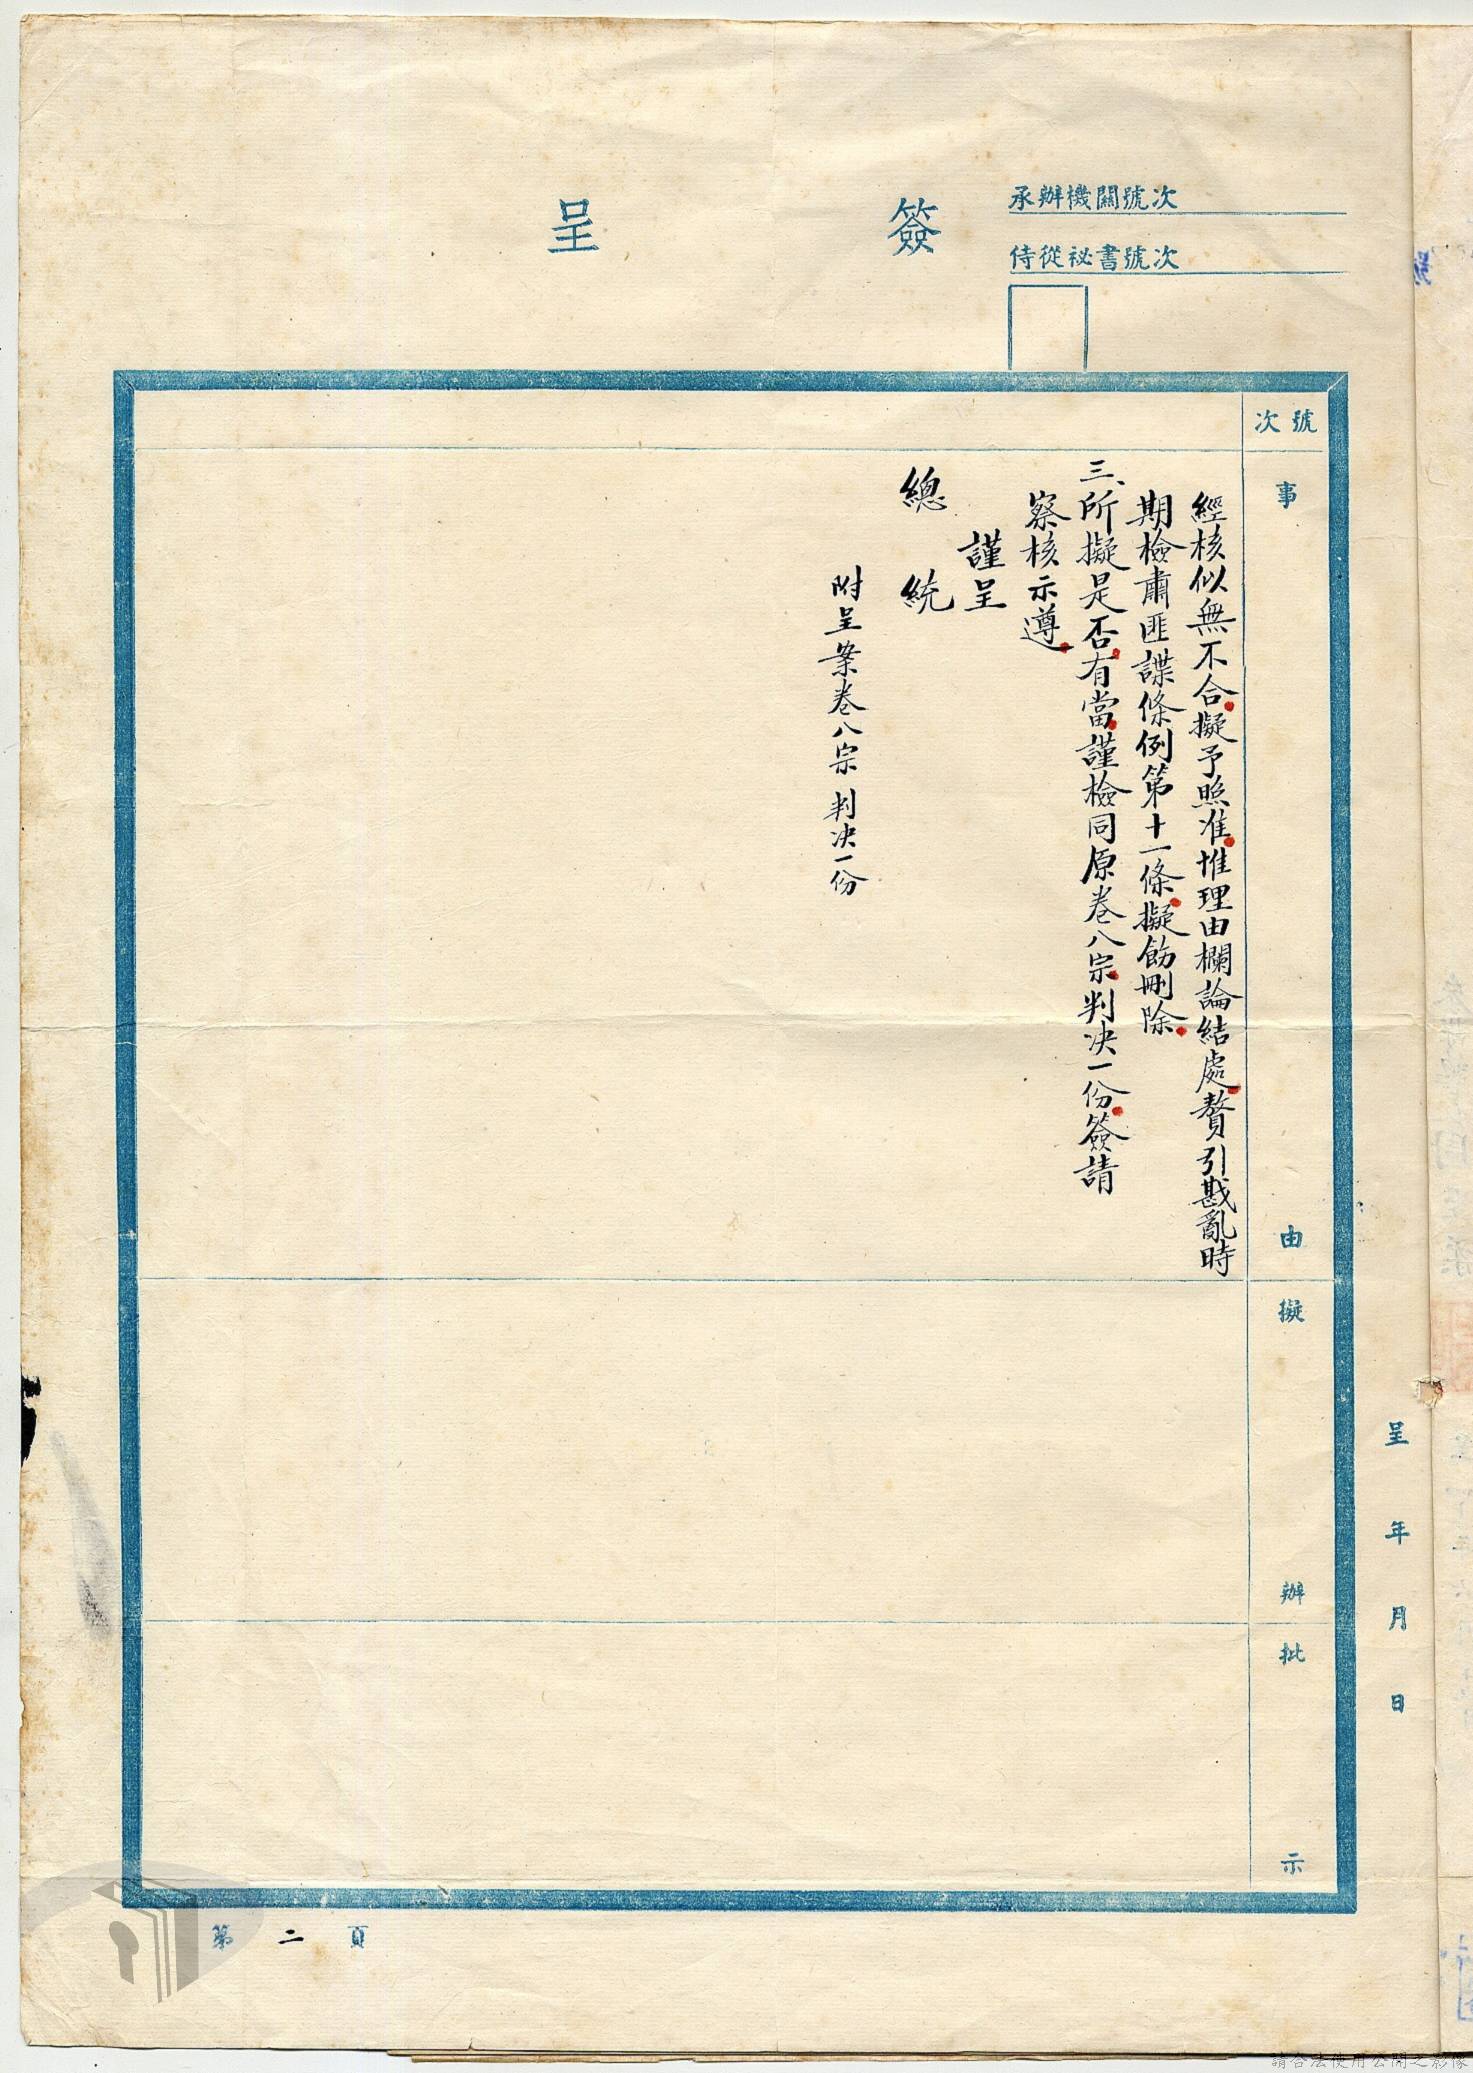 簽呈
承辦機關號次
侍從祕書號次
號次
事由
經核似無不合擬予照准惟理由欄論結處贅引戡亂時
期檢肅匪諜條例第十一條擬飭刪除
三、所擬是否有當謹檢同原卷八宗判決一份簽請
察核示遵
謹呈
總統
附呈案卷八宗 判決一份
擬辦
批示
呈 年 月 日
第二頁
請合法使用公開之影像